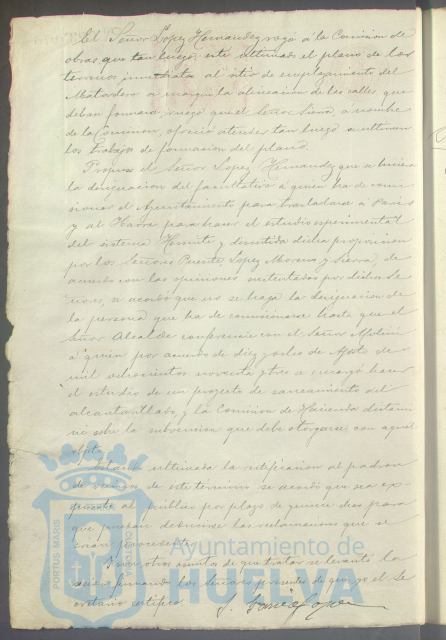 El Señor Lopez Hernandez rogó a la Comision de
obras que tan luego este ultimado el plano de los
terrenos inmediatos al sitio de emplazamiento del
Matadero se marque la alineacion de las calles que
deban formarse, ruego que el Señor Sierra, a nombre
de la Comision, ofreció atender tan luego se ultimen
los trabajos de formacion del plano.
Propuso el Señor Lopez Hernandez que se hiciera
la designacion del facultativo á quien ha de comi-
sionar el Ayuntamiento para trasladarse á Paris
y al Havre para hacer el estudio esperimental
del sistema Hermite y discutida dicha proposicion
por los Señores Puente, Lopez, Moreno y Sierra, de
acuerdo con las opiniones sustentadas por dichos Se-
ñores, se acordó que no se haga la designacion de
la persona que ha de comisionarse hasta que el
Señor Alcalde conferencie con el Señor Molini
á quien por acuerdo de diez y ocho de Mayo de
mil ochocientos noventa y tres se encargó hacer
el estudio de un proyecto de saneamiento del
alcantarillado, y la Comision de Hacienda dictami-
ne sobre la subvencion que debe otorgarse con aquel
objeto.
Estando ultimada la rectificacion al padron
de vecinos de este término se acordó que sea ex-
puesto al público por plazo de quince dias para
que puedan deducirse las reclamaciones que se
crean procedentes.
Sin otros asuntos de que tratar se levantó la
sesion firmando los Señores presentes de que yo el Se-
cretario certifico.
PORTUS MARIS
Ayuntamiento de
HUELVA